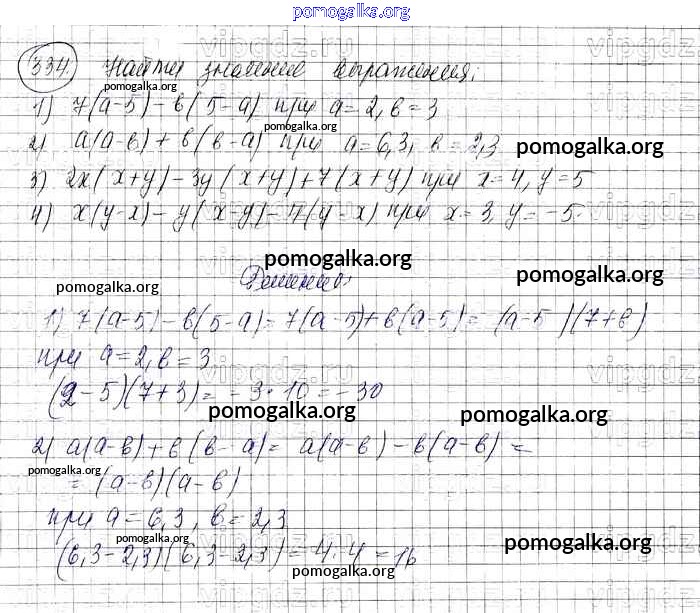 pomogalka.org
334. Найти значение выражения:
1) 7(a-5)-b(5-a) при a=2, b=3
pomogalka.org
2) a(a-b)+b(b-a) при a=6,3, b=2,3
pomogalka.org
3) 2x(x+y)-3y(x+y)+7(x+y) при x=4, y=5
4) x(y-x)-y(x-y)-7(y-x) при x=3, y=-5.
pomogalka.org
Решение:
pomogalka.org
pomogalka.org
1) 7(a-5)-b(5-a)=7(a-5)+b(a-5)=(a-5)(7+b)
при a=2, b=3
(2-5)(7+3)=-3·10=-30
pomogalka.org
pomogalka.org
2) a(a-b)+b(b-a)=a(a-b)-b(a-b)=
pomogalka.org
=(a-b)(a-b)
при a=6,3, b=2,3
pomogalka.org
(6,3-2,3)(6,3-2,3)=4·4=16
pomogalka.org
pomogalka.org